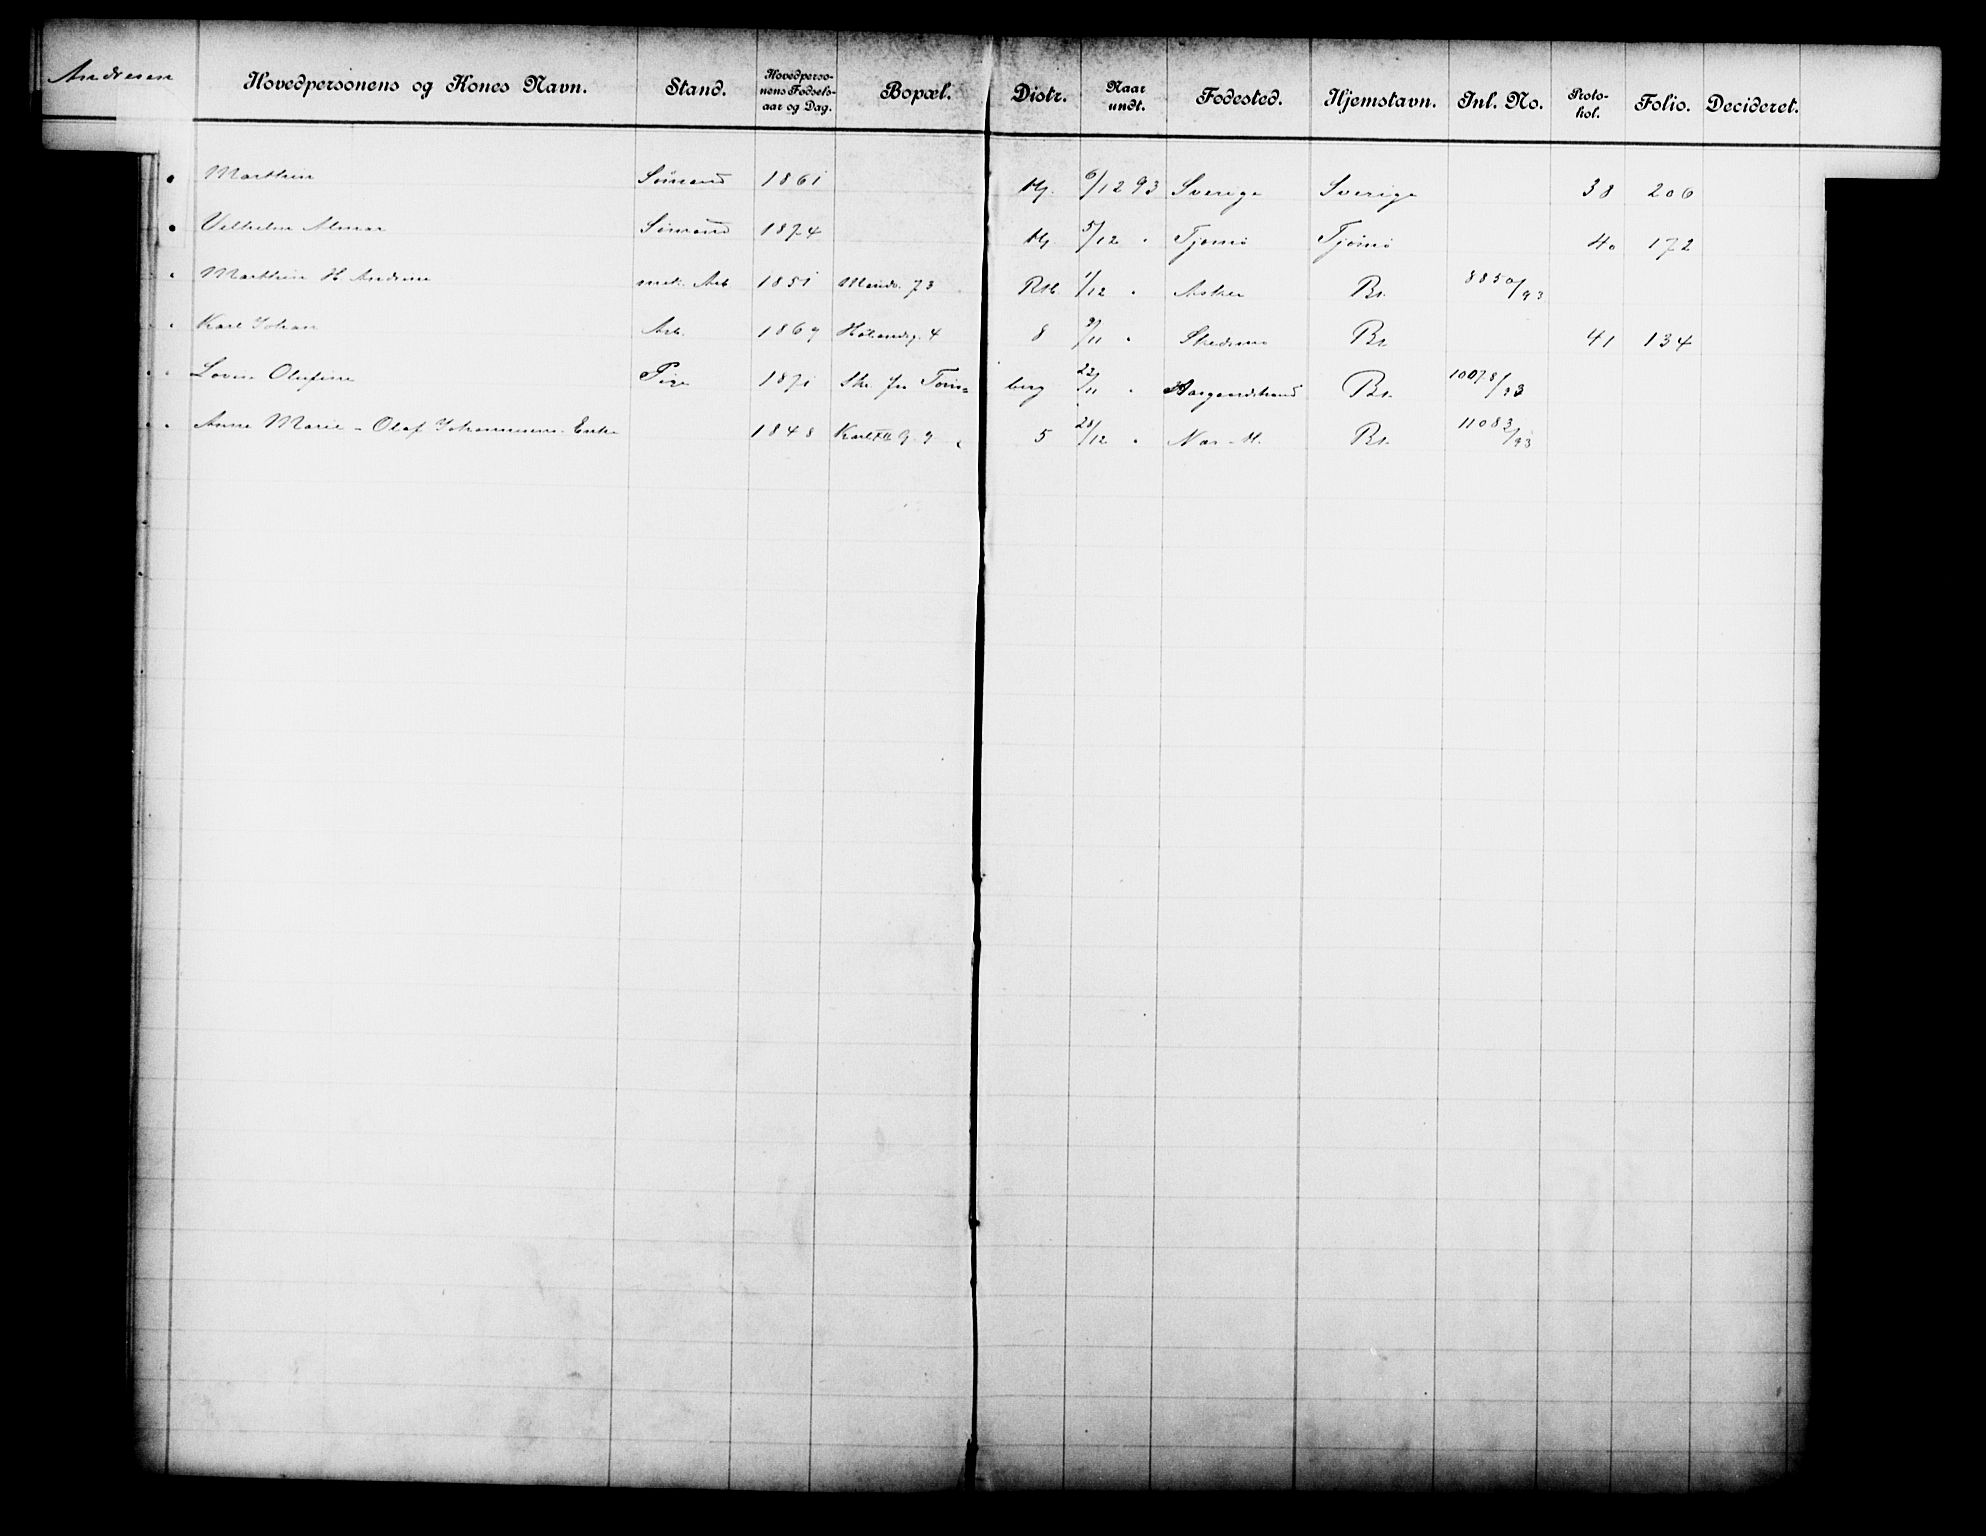 Andresen
Hovedpersonens og Kones Navn. Stand. Hovedpersonens Fødselsaar og Dag. Bopæl. Distr. Naar undt. Fødested. Hjemstavn. Inl. No. Protokol. Folio. Decideret.
Marthin Sømand 1861 6/12 93 Sverige Sverige 38 206
Vilhelm Sømand 1874 5/12 " Tjømø Tjømø 40 172
Marthin H. Andrsen Arb. 1851 73 1/12 " Asker By. 8850/93
Karl Johan Arb. 1869 4 8 9/11 " Skedsmo By. 41 134
Olufine Pige 1871 Tøns= berg 22/11 " Aasgaardstrand By. 10078/93
Anne Marie - Olaf Johannesens Enke 1848 Karl XII g. 9 5 28/12 " By. 11083/93